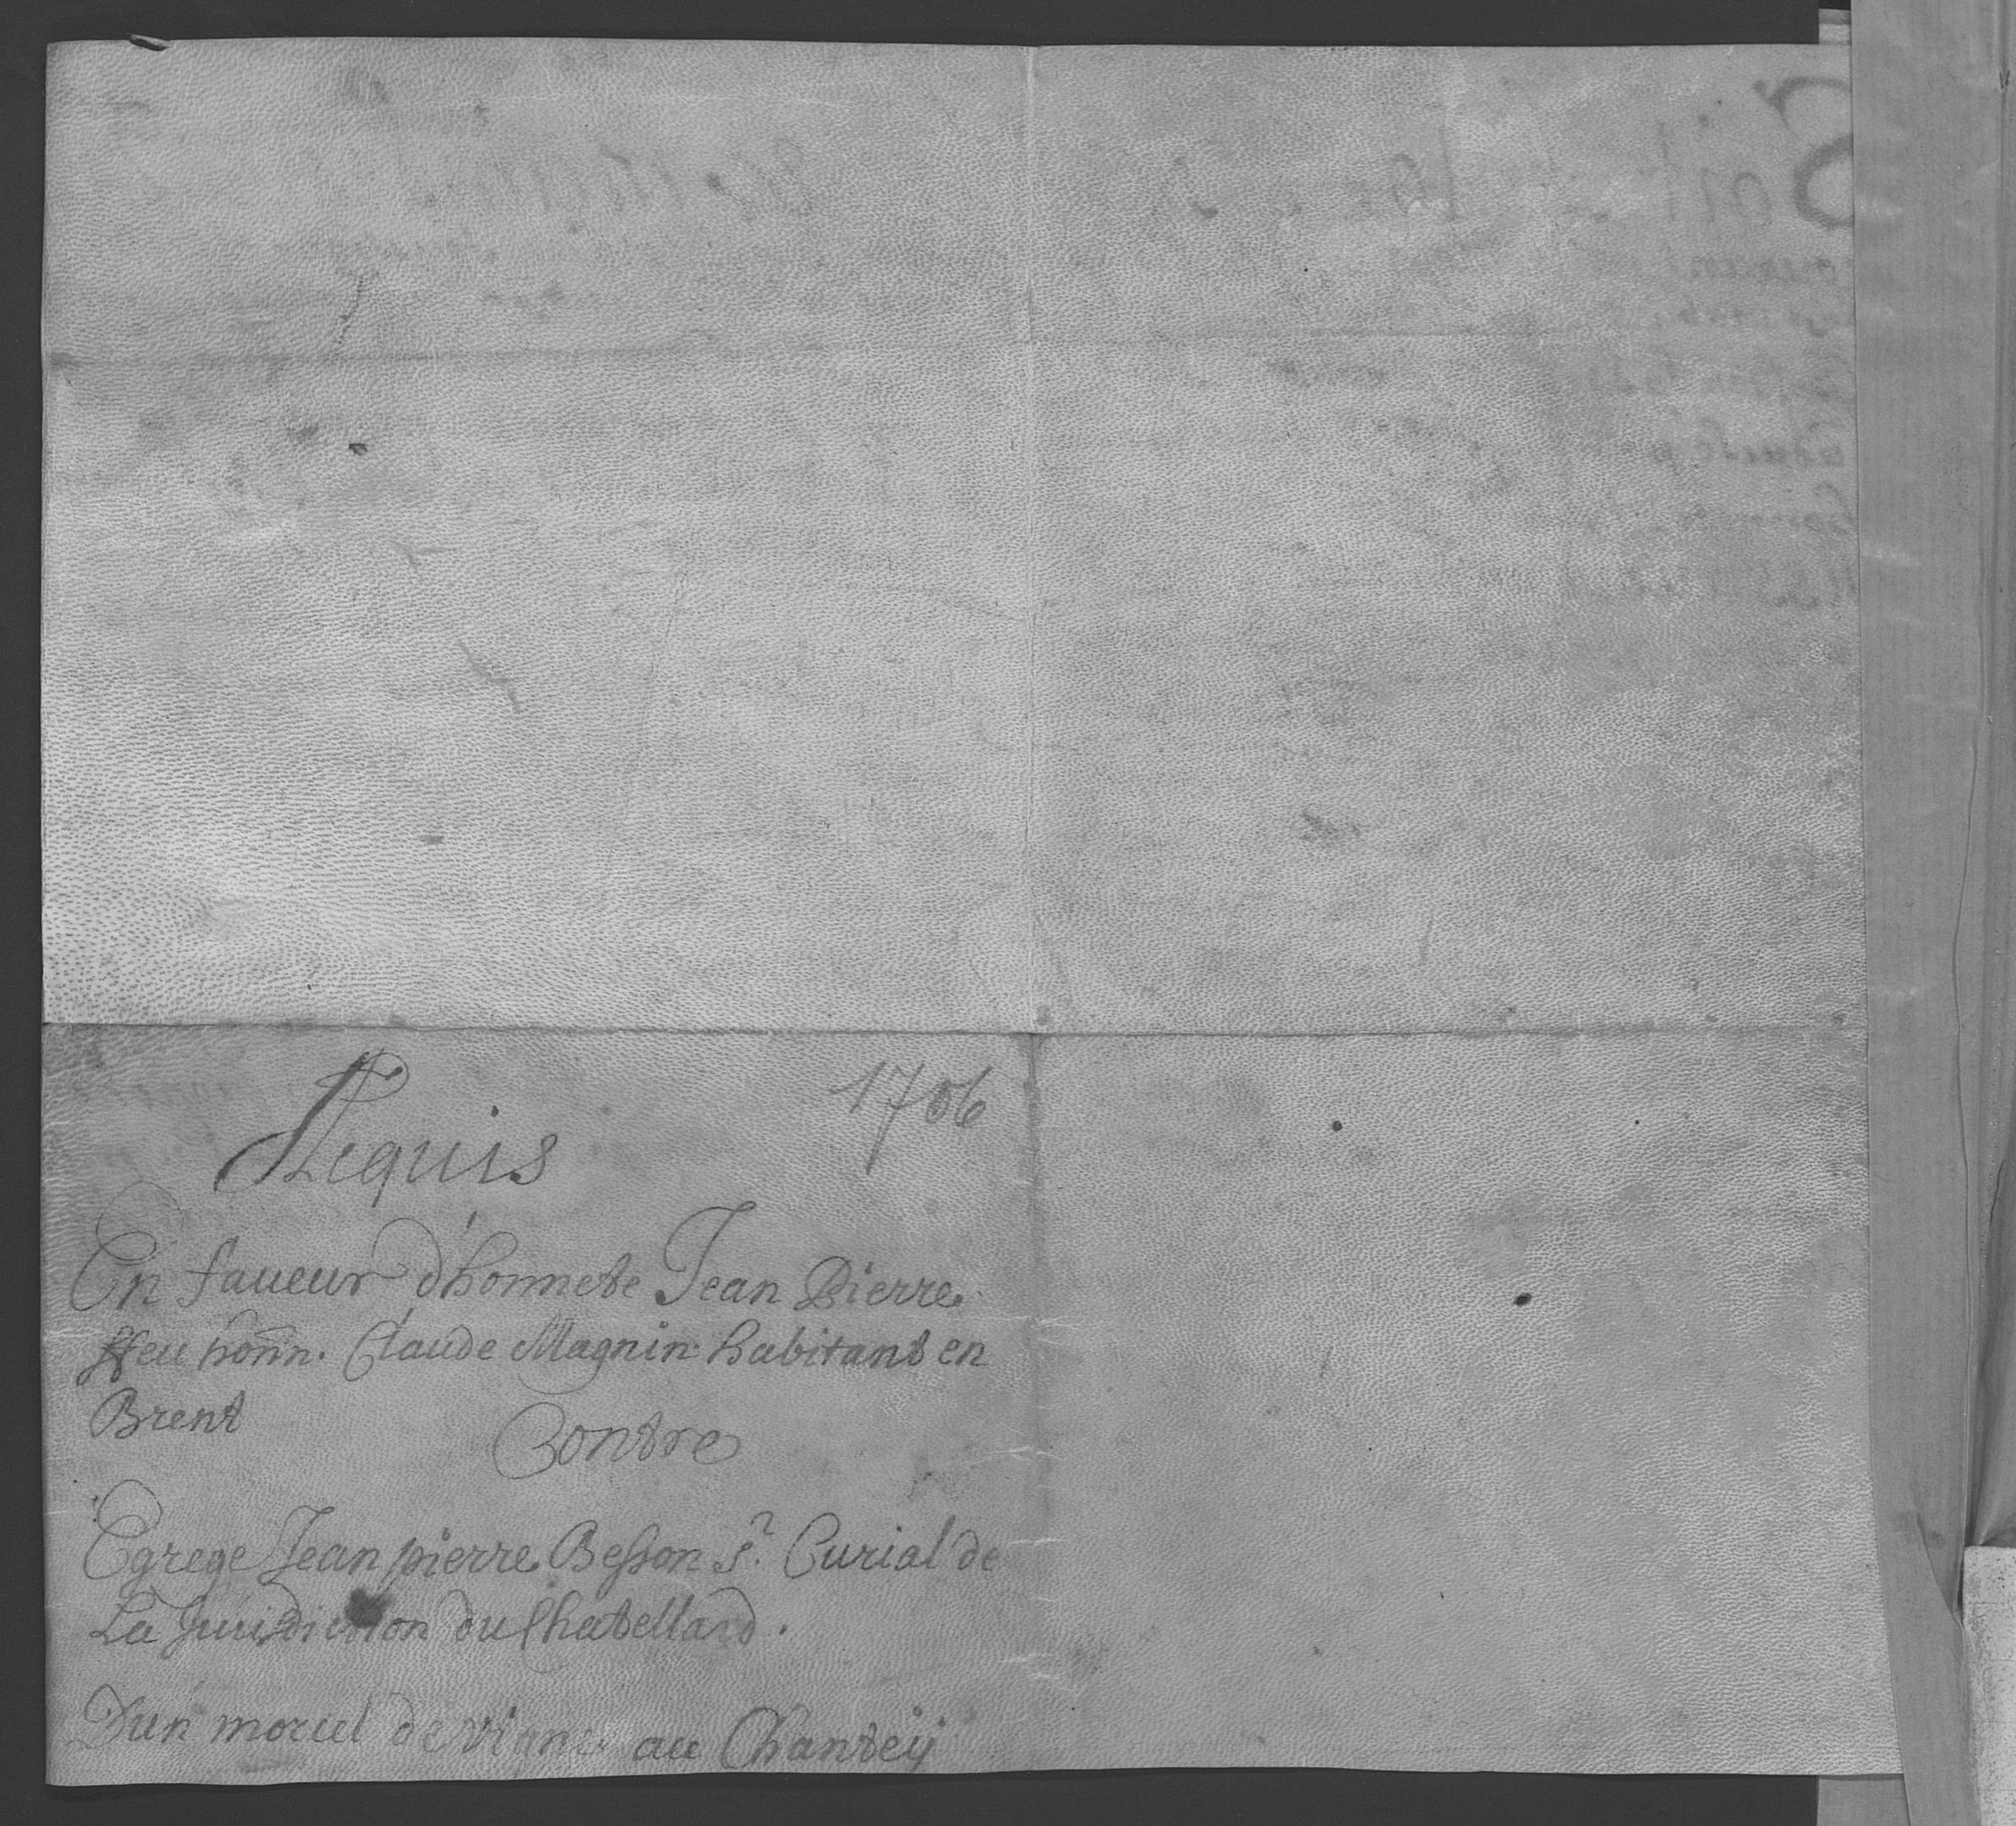 1706
Acquis
En faueur d'honnete Jean Pierre
ffeu honn. Claude Magnin habitant en
Brent
Contre
Egrege Jean pierre Besson Sr. Curial de
La Jurisdiction du Chatellard.
D'un morcel de vigne au Chantey